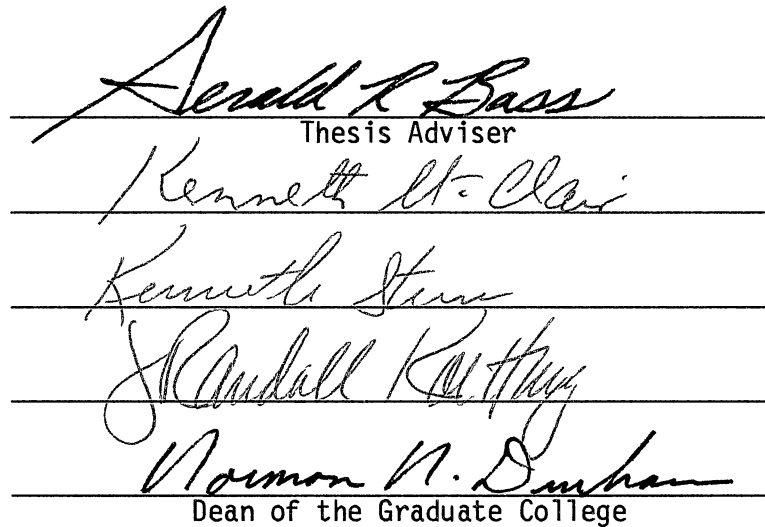 Gerald R Bass
Thesis Adviser
Kenneth St. Clair
Kenneth Stern
J Randall
Norman N. Durham
Dean of the Graduate College